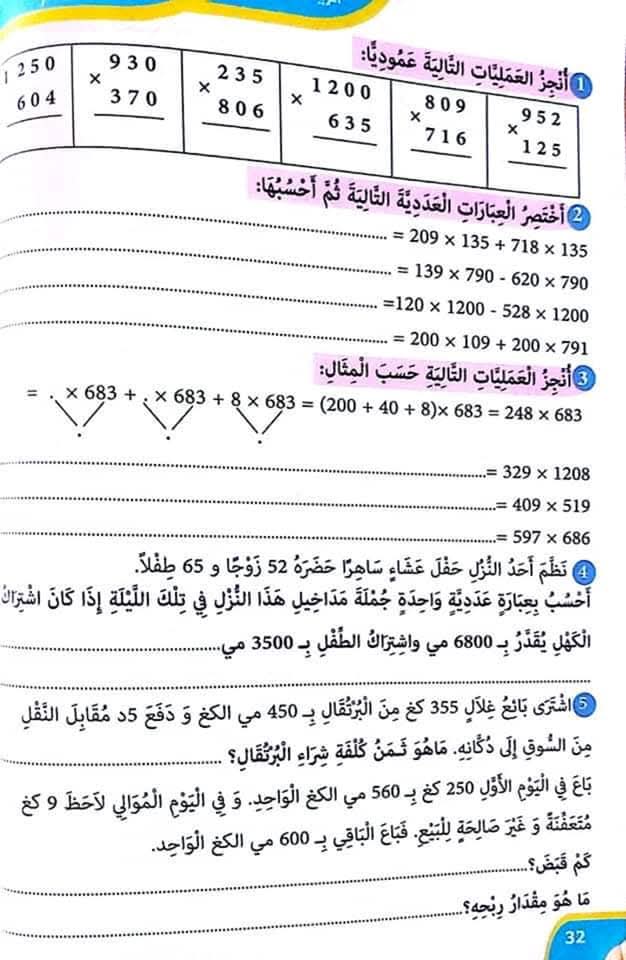 1 أُنْجِزُ العَمَلِيَّاتِ التَّالِيَةَ عَمُودِيًّا:
952 × 125
809 × 716
1200 × 635
235 × 806
930 × 370
1250 604
2 أَخْتَصِرُ الْعِبَارَاتِ الْعَدَدِيَّةَ التَّالِيَةَ ثُمَّ أَحْسُبُهَا:
135 × 718 + 135 × 209 = ....................
790 × 620 - 790 × 139 = ....................
1200 × 528 - 1200 × 120= ....................
791 × 200 + 109 × 200 = ....................
3 أُنْجِزُ الْعَمَلِيَّاتِ التَّالِيَةِ حَسَبَ الْمِثَالِ:
683 × 248 = 683 ×(8 + 40 + 200) = 683 × 8 + 683 × . + 683 × . =
. . .
1208 × 329 =....................
519 × 409 =....................
686 × 597 =....................
4 نَظَّمَ أَحَدُ النُّزُلِ حَفْلَ عَشَاءٍ سَاهِرًا حَضَرَهُ 52 زَوْجًا و 65 طِفْلاً.
أَحْسُبُ بِعِبَارَةٍ عَدَدِيَّةٍ وَاحِدَةٍ جُمْلَةَ مَدَاخِيلِ هَذَا النُّزْلِ فِي تِلْكَ اللَّيْلَةِ إِذَا كَانَ اشْتِرَاكُ
الْكَهْلِ يُقَدَّرُ بِـ 6800 مي واشِتِرَاكُ الطِّفْلِ بِـ 3500 مي....................
....................
5 اشْتَرَى بَائِعُ غِلاَلٍ 355 كغ مِنَ الْبُرْتُقَالِ بِـ 450 مي الكغ وَ دَفَعَ 5د مُقَابِلَ النَّقْلِ
مِنَ السُّوقِ إِلَى دُكَّانِهِ. مَاهُوَ ثَـمَنُ كُلْفَةِ شِرَاءِ الْبُرْتُقَالِ؟ ....................
بَاعَ فِي الْيَوْمِ الأَوَّلِ 250 كغ بِـ 560 مي الكغ الْوَاحِدِ. وَ فِي الْيَوْمِ الْمُوَالِي لاَحَظَ 9 كغ
مُتَعَفِّنَةً وَ غَيْرَ صَالِحَةٍ لِلْبَيْعِ. فَبَاعَ الْبَاقِي بِـ 600 مي الكغ الْوَاحِد.
كَمْ قَبَضَ؟....................
مَا هُوَ مِقْدَارُ رِبْحِهِ؟....................
32